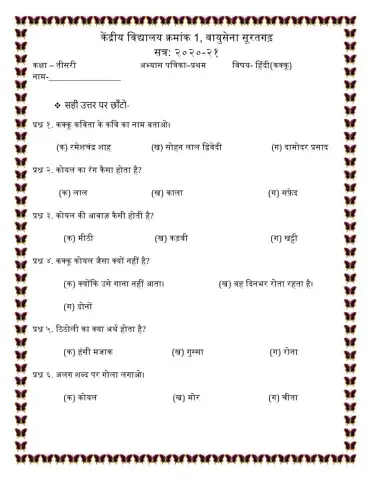 केंद्रीय विद्यालय क्रमांक 1, वायुसेना सूरतगढ़
सत्र: २०२०-२१
कक्षा – तीसरी अभ्यास पत्रिका–प्रथम विषय- हिंदी(कक्कू)
नाम-___________________
❖ सही उत्तर पर छाँटो-
प्रश्न १. कक्कू कविता के कवि का नाम बताओ।
(क) रमेशचंद्र शाह (ख) सोहन लाल द्विवेदी (ग) दामोदर प्रसाद
प्रश्न २. कोयल का रंग कैसा होता है?
(क) लाल (ख) काला (ग) सफ़ेद
प्रश्न ३. कोयल की आवाज़ कैसी होती है?
(क) मीठी (ख) कड़वी (ग) खट्टी
प्रश्न ४. कक्कू कोयल जैसा क्यों नहीं है?
(क) क्योंकि उसे गाना नहीं आता। (ख) वह दिनभर रोता रहता है।
(ग) दोनों
प्रश्न ५. ठिठोली का क्या अर्थ होता है?
(क) हंसी मजाक (ख) गुस्सा (ग) रोना
प्रश्न ६. अलग शब्द पर गोला लगाओ।
(क) कोयल (ख) मोर (ग) चीता